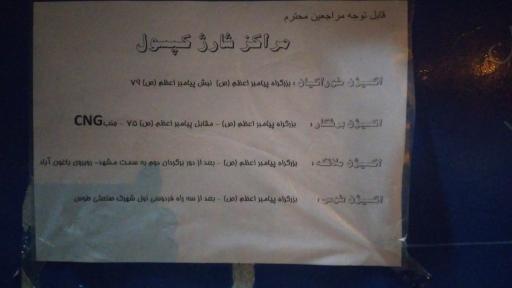 قابل توجه مراجعین محترم
مراکز شارژ کپسول
اکسیژن خوراکیان : بزرگراه پیامبر اعظم (ص) نبش پیامبر اعظم (ص) ۷۹
اکسیژن برنکار : بزرگراه پیامبر اعظم (ص) - مقابل پیامبر اعظم (ص) ۷۵ - جنب CNG
اکسیژن ملائک : بزرگراه پیامبر اعظم (ص) - بعد از دور برگردان دوم به سمت مشهد- روبروی باغون آباد
اکسیژن طوس : بزرگراه پیامبر اعظم (ص) - بعد از سه راه فردوسی اول شهرک صنعتی طوس